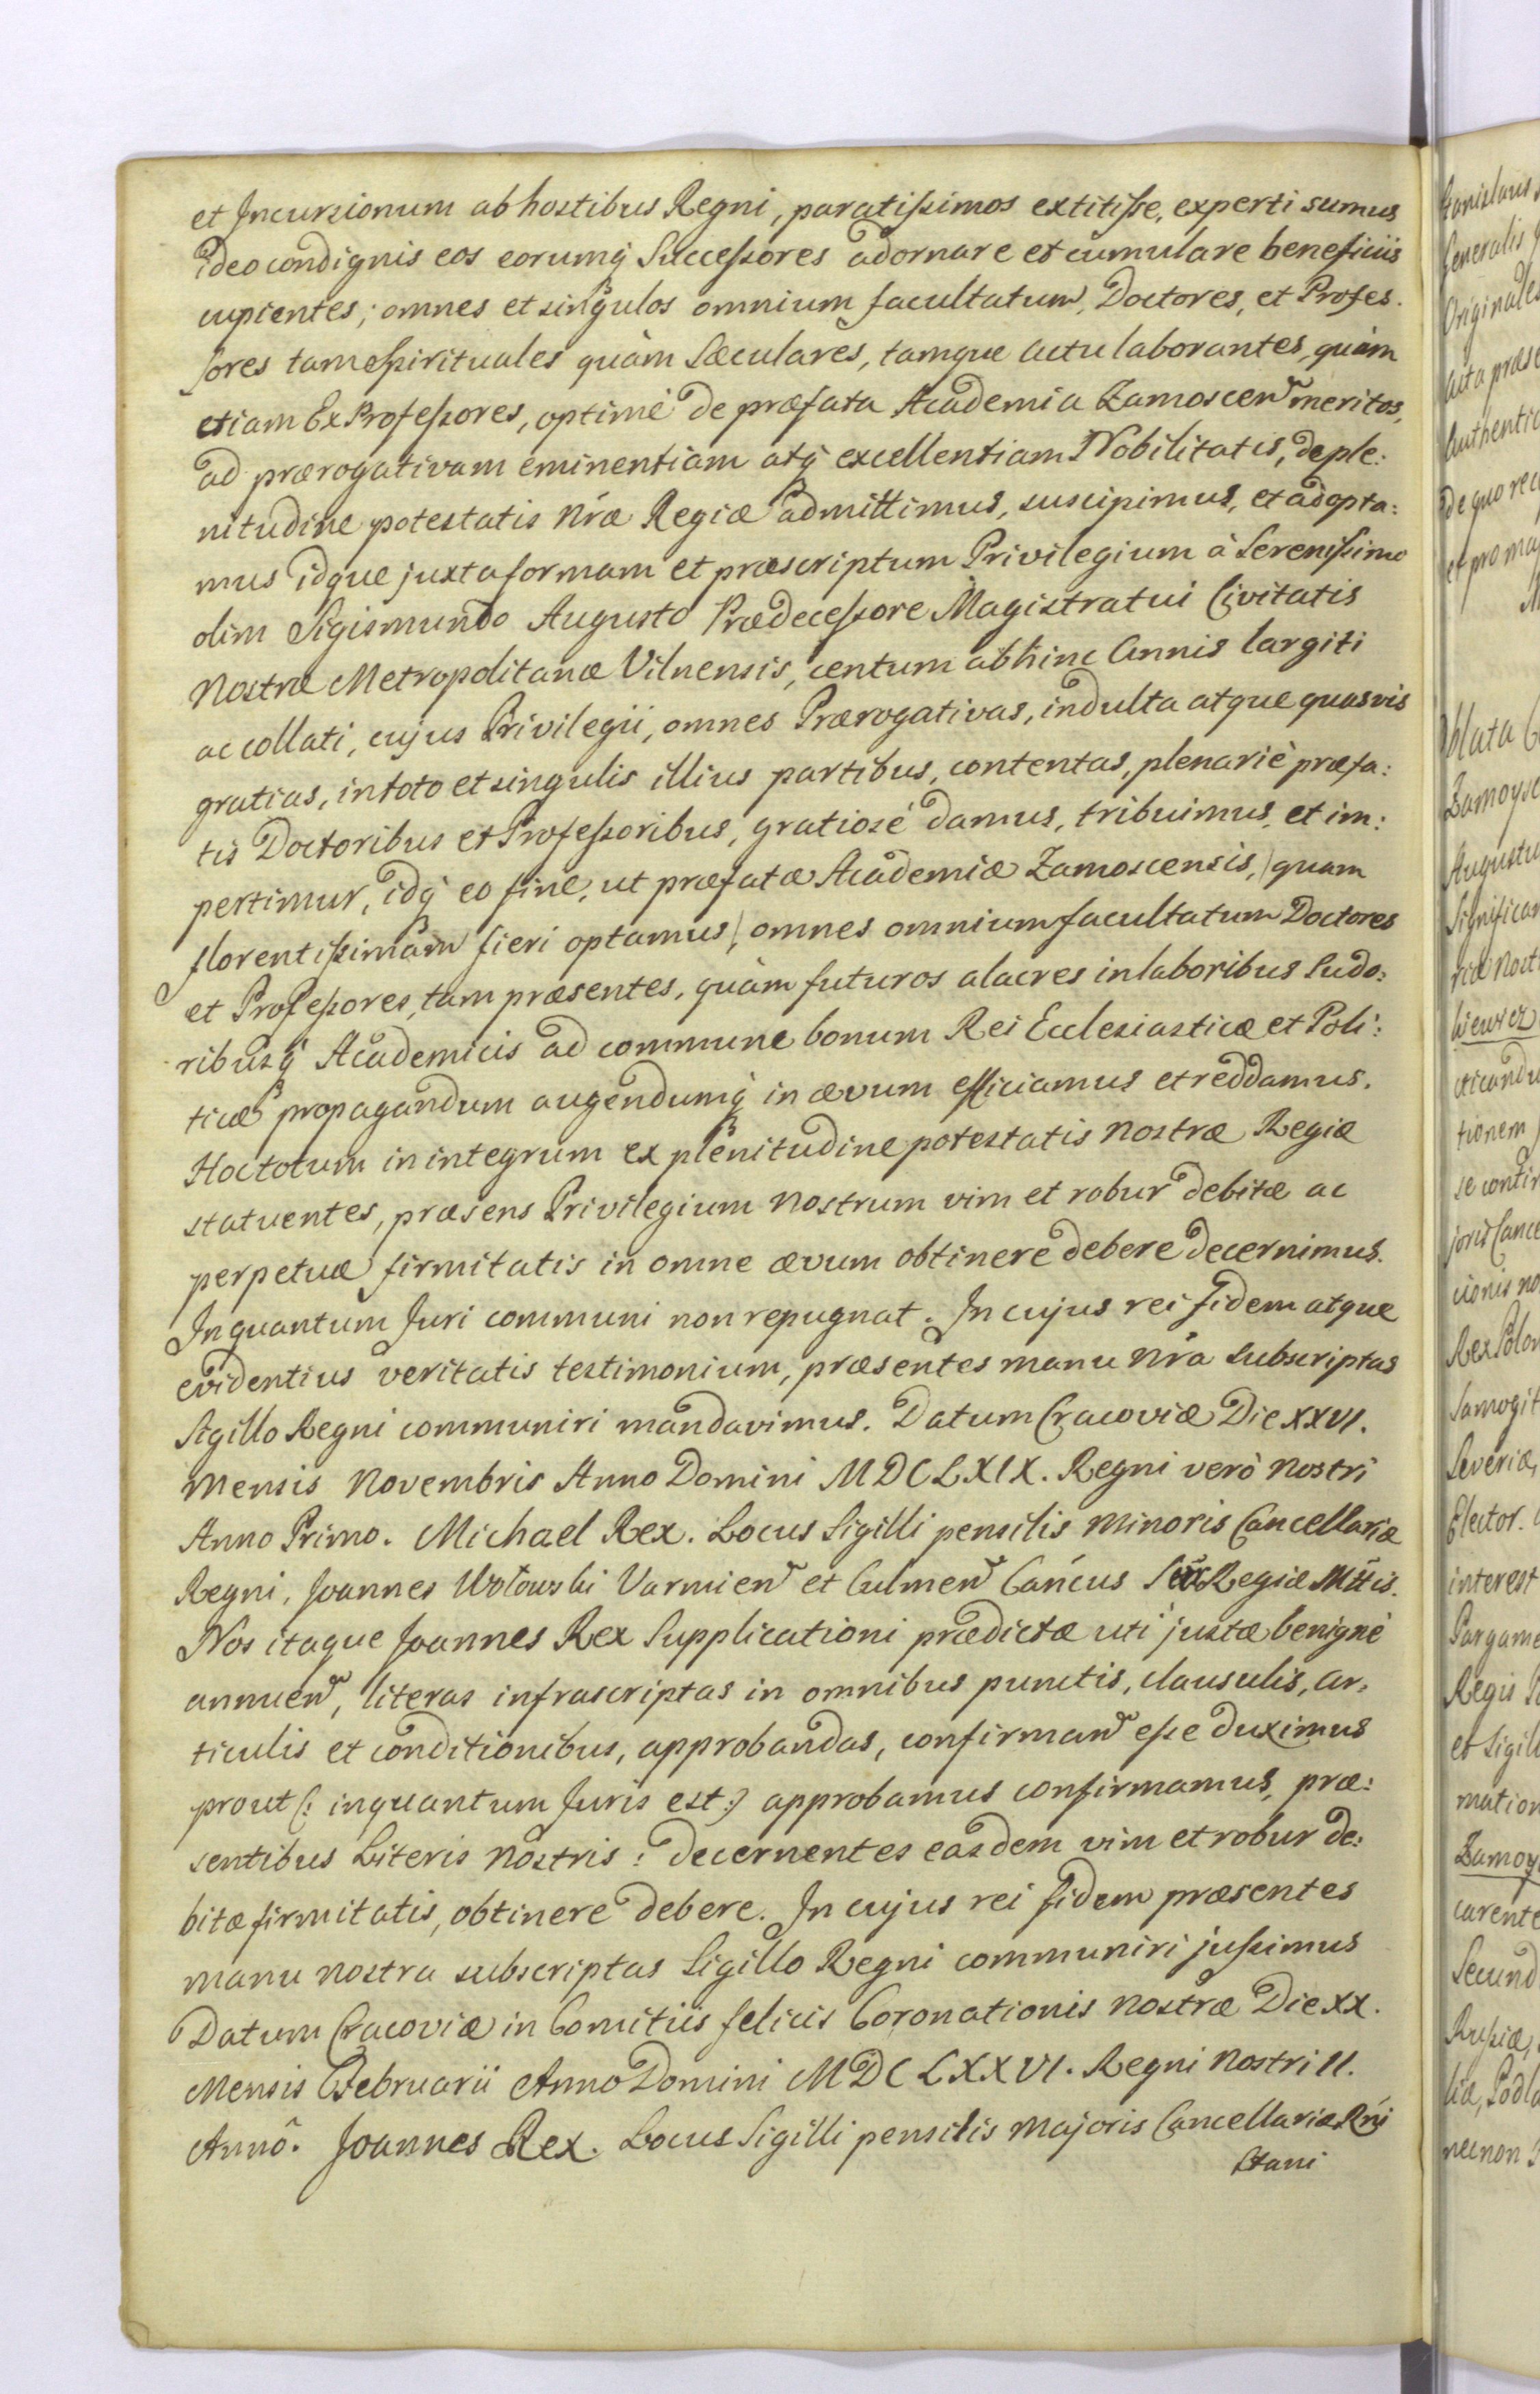 et Incursionum ab hostibus Regni, paratissimos extitisse, experti sumus
ideo condignis eos eorumq́ Successores adornare et cumulare beneficiis
cupientes; omnes et singulos omnium facultatum, Doctores, et Profes:
sores tam Spirituales quàm Sæculares, tamque Actu laborantes, quàm
etiam Ex Professores, optimè de præfata Academia Zamoscen meritos,
ad prærogativam eminentiam atq́ excellentiam Nobilitatis, de ple:
nitudine potestatis Nræ Regiæ admittimus, suscipimus, et adopta:
mus idque juxta formam et præscriptum Privilegium à Serenissimo
olim Sigismundo Augusto Prædecessore Magistratui Civitatis
Nostræ Metropolitanæ Vilnensis, centum abhinc Annis largiti
ac collati, cujus Privilegii, omnes Prærogativas, indulta atque quasvis
gratias, in toto et singulis illius partibus, contentas, plenariè præfa:
tis Doctoribus et Professoribus, gratiosè damus, tribuimus, et im:
pertimur, idq́ eo fine, ut præfatæ Academiæ Zamoscensis, / quam
florentissimam fieri optamus /, omnes omnium facultatum Doctores
et Professores, tam præsentes, quàm futuros alacres in laboribus Sudo:
ribusq́ Academicis ad commune bonum Rei Ecclesiasticæ et Poli:
ticæ propagandum augendumq́ in ævum efficiamus et reddamus.
Hoc totum in integrum ex plenitudine potestatis nostræ Regiæ
statuentes, præsens Privilegium nostrum vim et robur debitæ ac
perpetuæ firmitatis in omne ævum obtinere debere decernimus.
In quantum Juri communi non repugnat. In cujus rei fidem atque
evidentius veritatis testimonium, præsentes manu Nra Subscriptas
Sigillo Regni communiri mandavimus. Datum Cracoviæ Die XXVI.
Mensis Novembris Anno Domini MDCLXIX. Regni verò Nostri
Anno Primo. Michael Rex. Locus Sigilli pensilis Minoris Cancellariæ
Regni, Joannes Wołowski Varmien et Culmen Cańcus Regiæ Mttis.
Nos itaque Joannes Rex Supplicationi prædictæ uti justæ benignè
annuen, literas infrascriptas in omnibus punctis, clausulis, Ar:
ticulis et conditionibus, approbandas, confirman esse duximus
prout (: inquantum Juris est :) approbamus confirmamus, præ:
sentibus Literis Nostris: decernentes easdem vim et robur de:
bitæ firmitatis, obtinere debere. In cujus rei fidem præsentes
manu nostra subscriptas Sigillo Regni communiri jussimus
Datum Cracoviæ in Comitiis felicis Coronationis nostræ Die XX.
Mensis Februarii Anno Domini MDCLXXVI. Regni Nostri II.
Annô. Joannes Rex. Locus Sigilli pensilis Majoris Cancellariæ Rńi
Stani